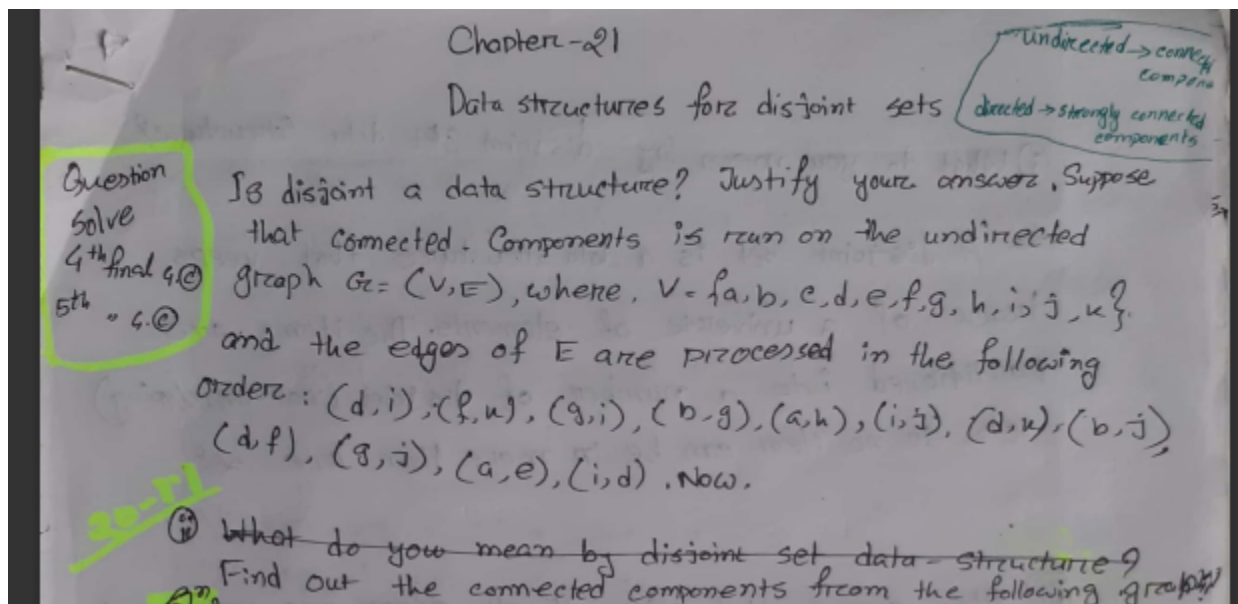 Chapter-21
Data structures for disjoint sets
undirected → connect
compone
directed → strongly connected
components
Question
Solve
4th final 4.(c)
5th " 4.(c)
Is disjoint a data structure? Justify your answer. Suppose
that Connected. Components is run on the undirected
graph G = (V,E), where, V = {a, b, c, d, e, f, g, h, i, j, k}.
and the edges of E are processed in the following
order: (d,i), (f,k), (g,i), (b,g), (a,h), (i,j), (d,k), (b,j),
(d,f), (g,j), (a,e), (i,d). Now.
What do you mean by disjoint set data-structure?
Find out the connected components from the following